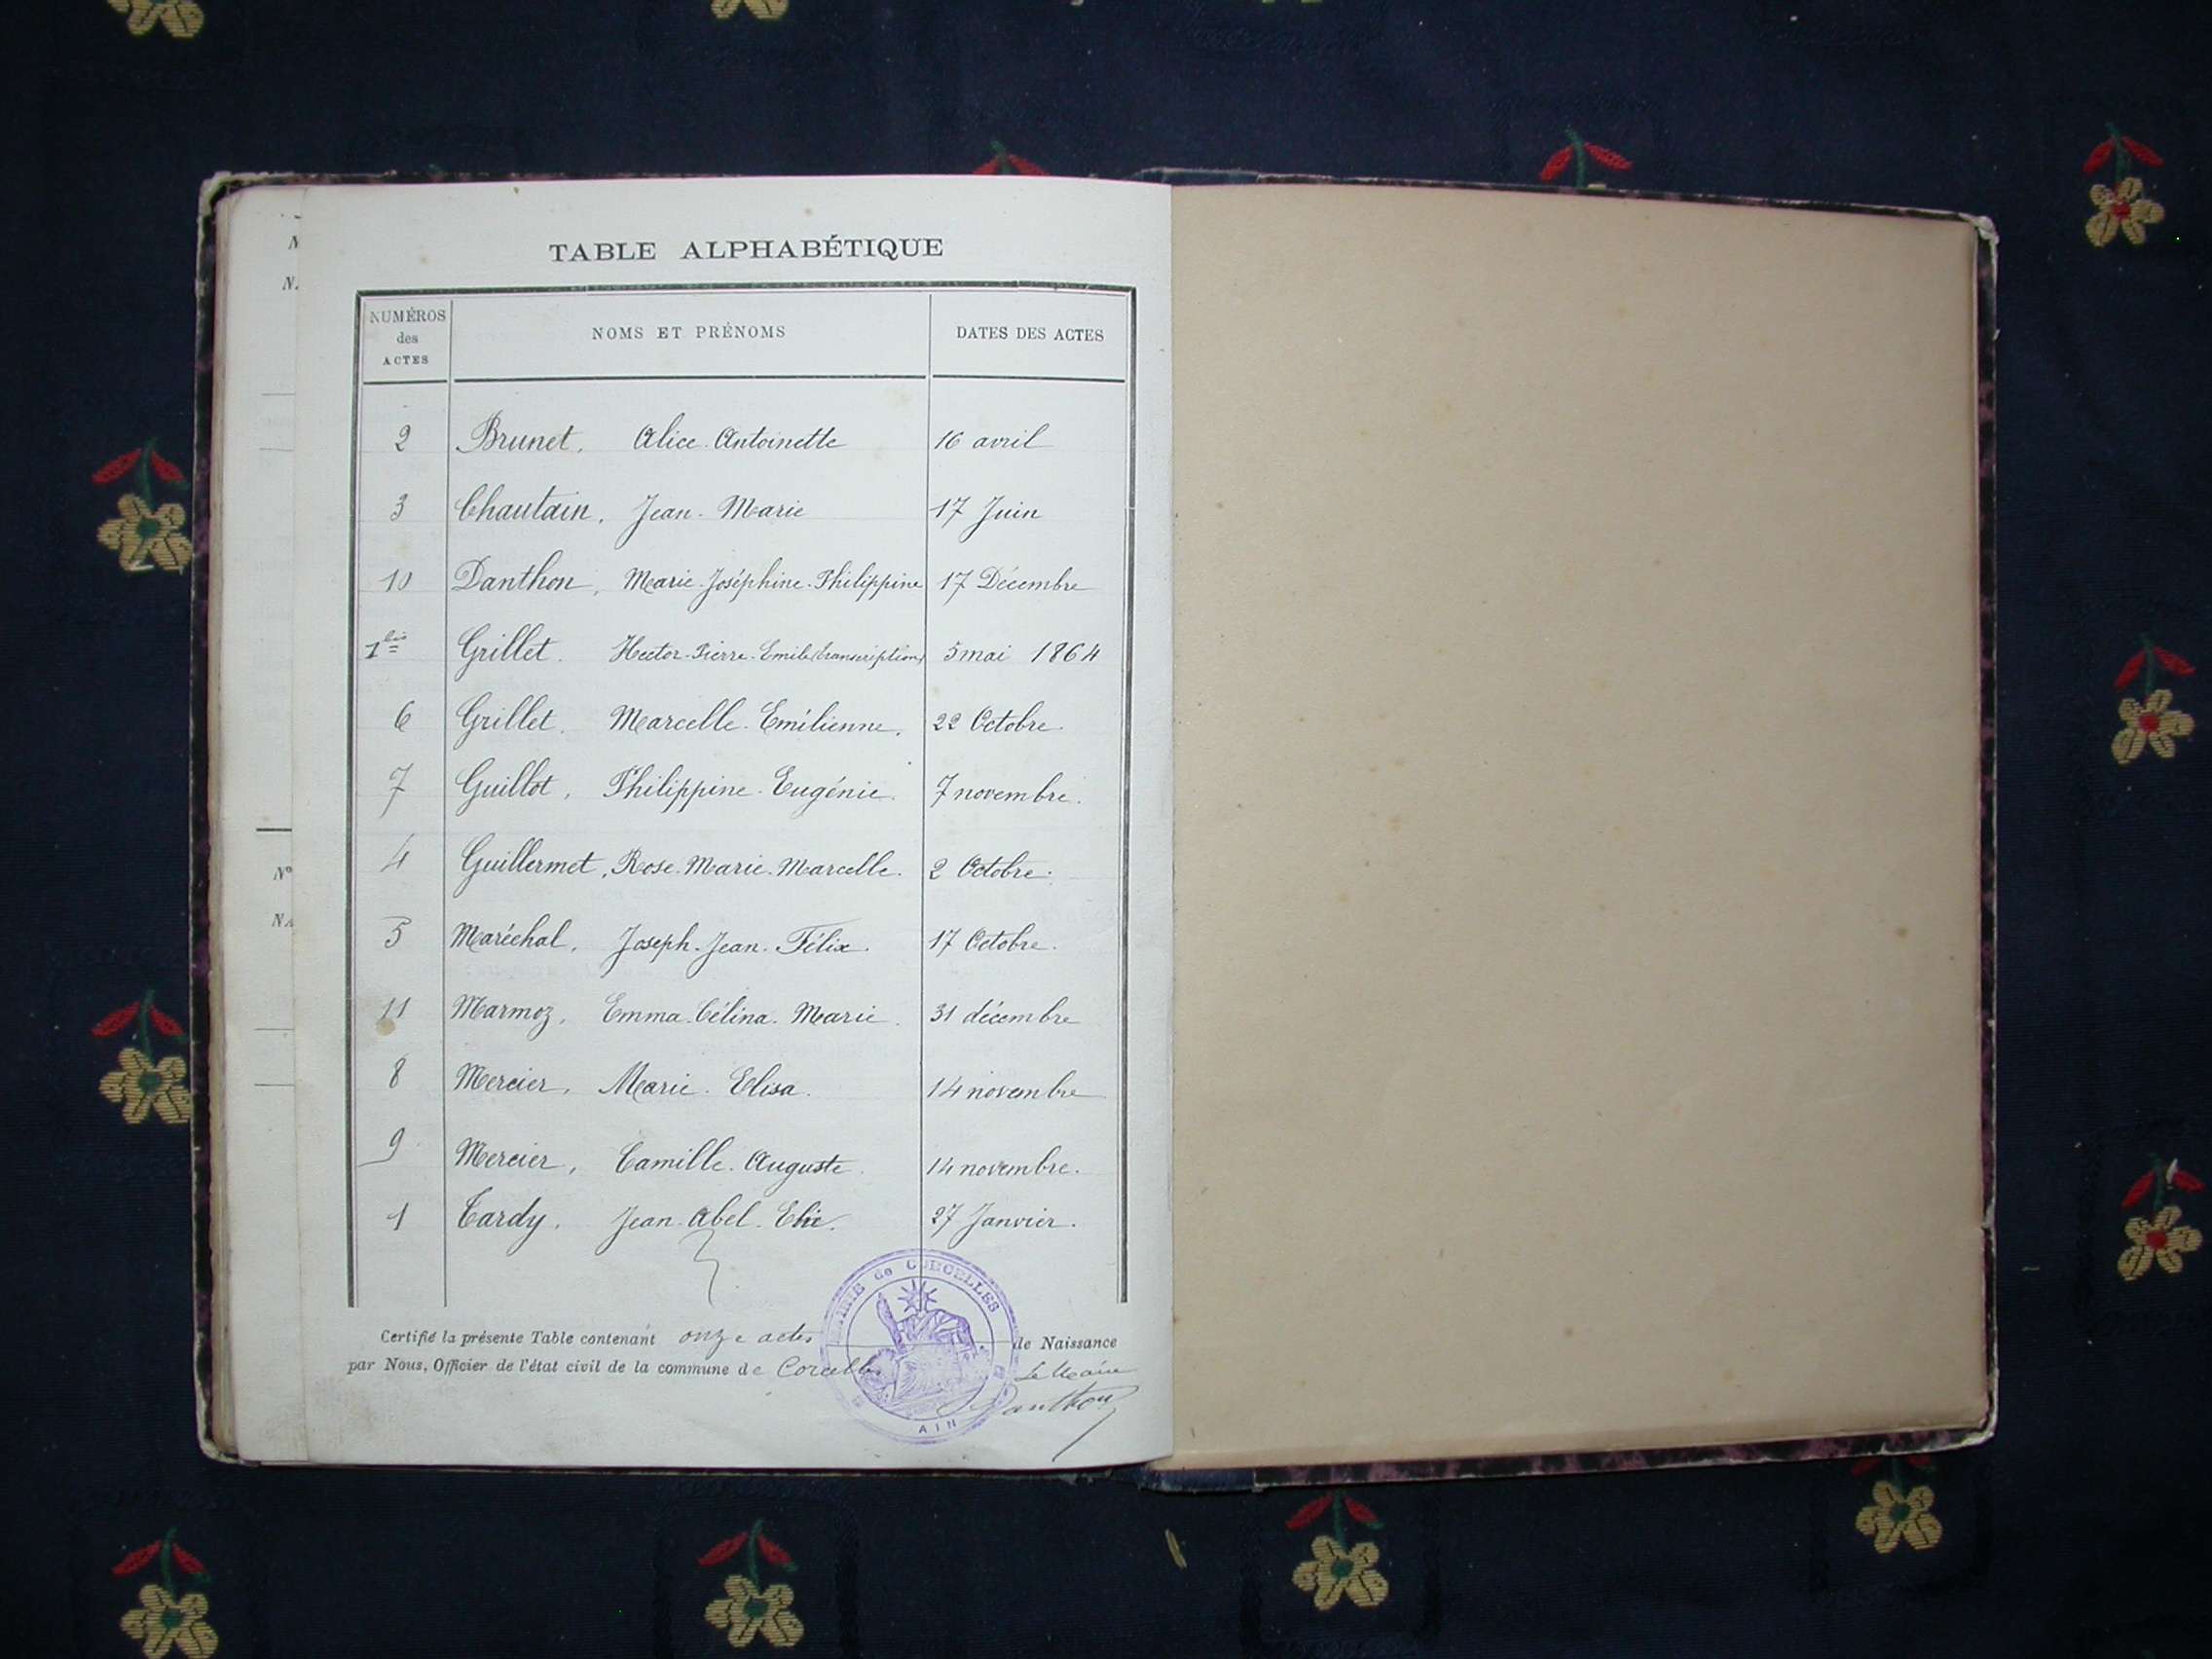 N
N.
Nº
NA
TABLE ALPHABÉTIQUE
NUMÉROS des ACTES NOMS ET PRÉNOMS DATES DES ACTES
2 Brunet, Alice Antoinette 16 avril
3 Chautain, Jean-Marie 17 Juin
10 Danthon, Marie-Joséphine-Philippine 17 Décembre
1 bis Grillet. Hector-Pierre-Emile (transcription) 5 mai 1864
6 Grillet. Marcelle-Emilienne. 22 Octobre.
7 Guillot, Philippine-Eugénie. 7 novembre.
4 Guillermet, Rose-Marie-Marcelle. 2 Octobre.
5 Maréchal, Joseph-Jean-Félix. 17 Octobre.
11 Marmoz, Emma-Célina-Marie. 31 décembre
8 Mercier, Marie-Elisa. 14 novembre
9 Mercier, Camille-Auguste. 14 novembre.
1 Tardy, Jean-Abel-Elie. 27 Janvier.
MAIRIE de CORCELLES
AIN
Certifié la présente Table contenant onze actes de Naissance
par Nous, Officier de l'état civil de la commune de Corcelles Le Maire
Danthon